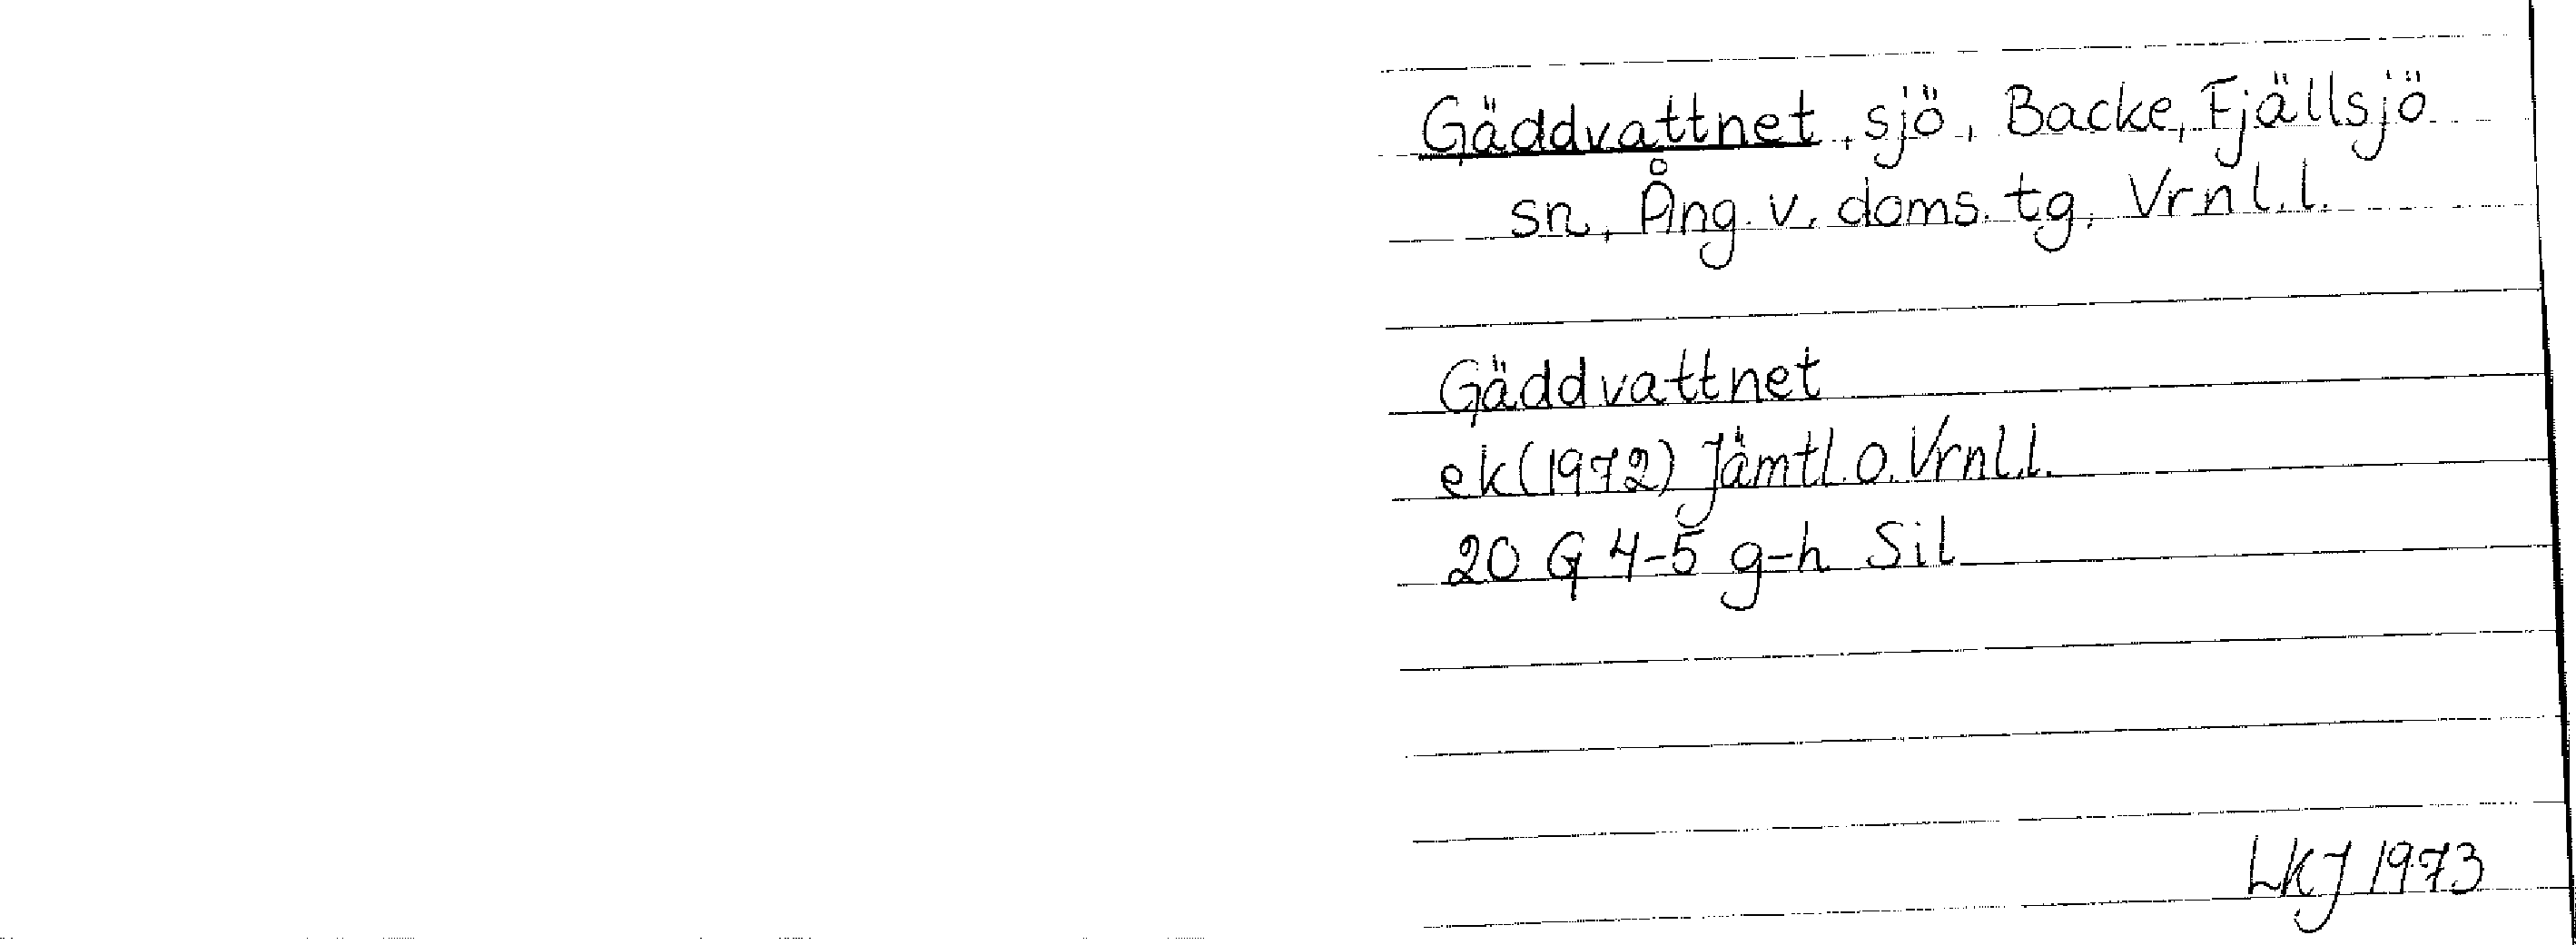 Gäddvattnet, sjö, Backe, Fjällsjö
sn, Ång. v. doms. tg, Vrnl.l.
Gäddvattnet
ek (1972) Jämtl. o. Vrnl.l.
20 G 4-5 g-h Sil
LKJ 1973